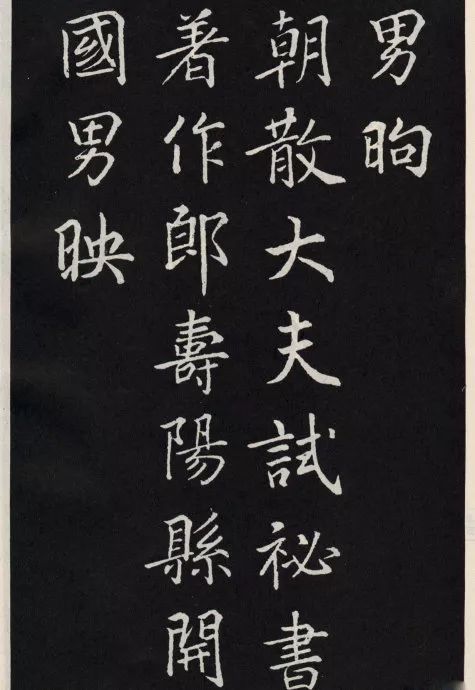 男昫
朝散大夫試祕書
著作郎壽陽縣開
國男映